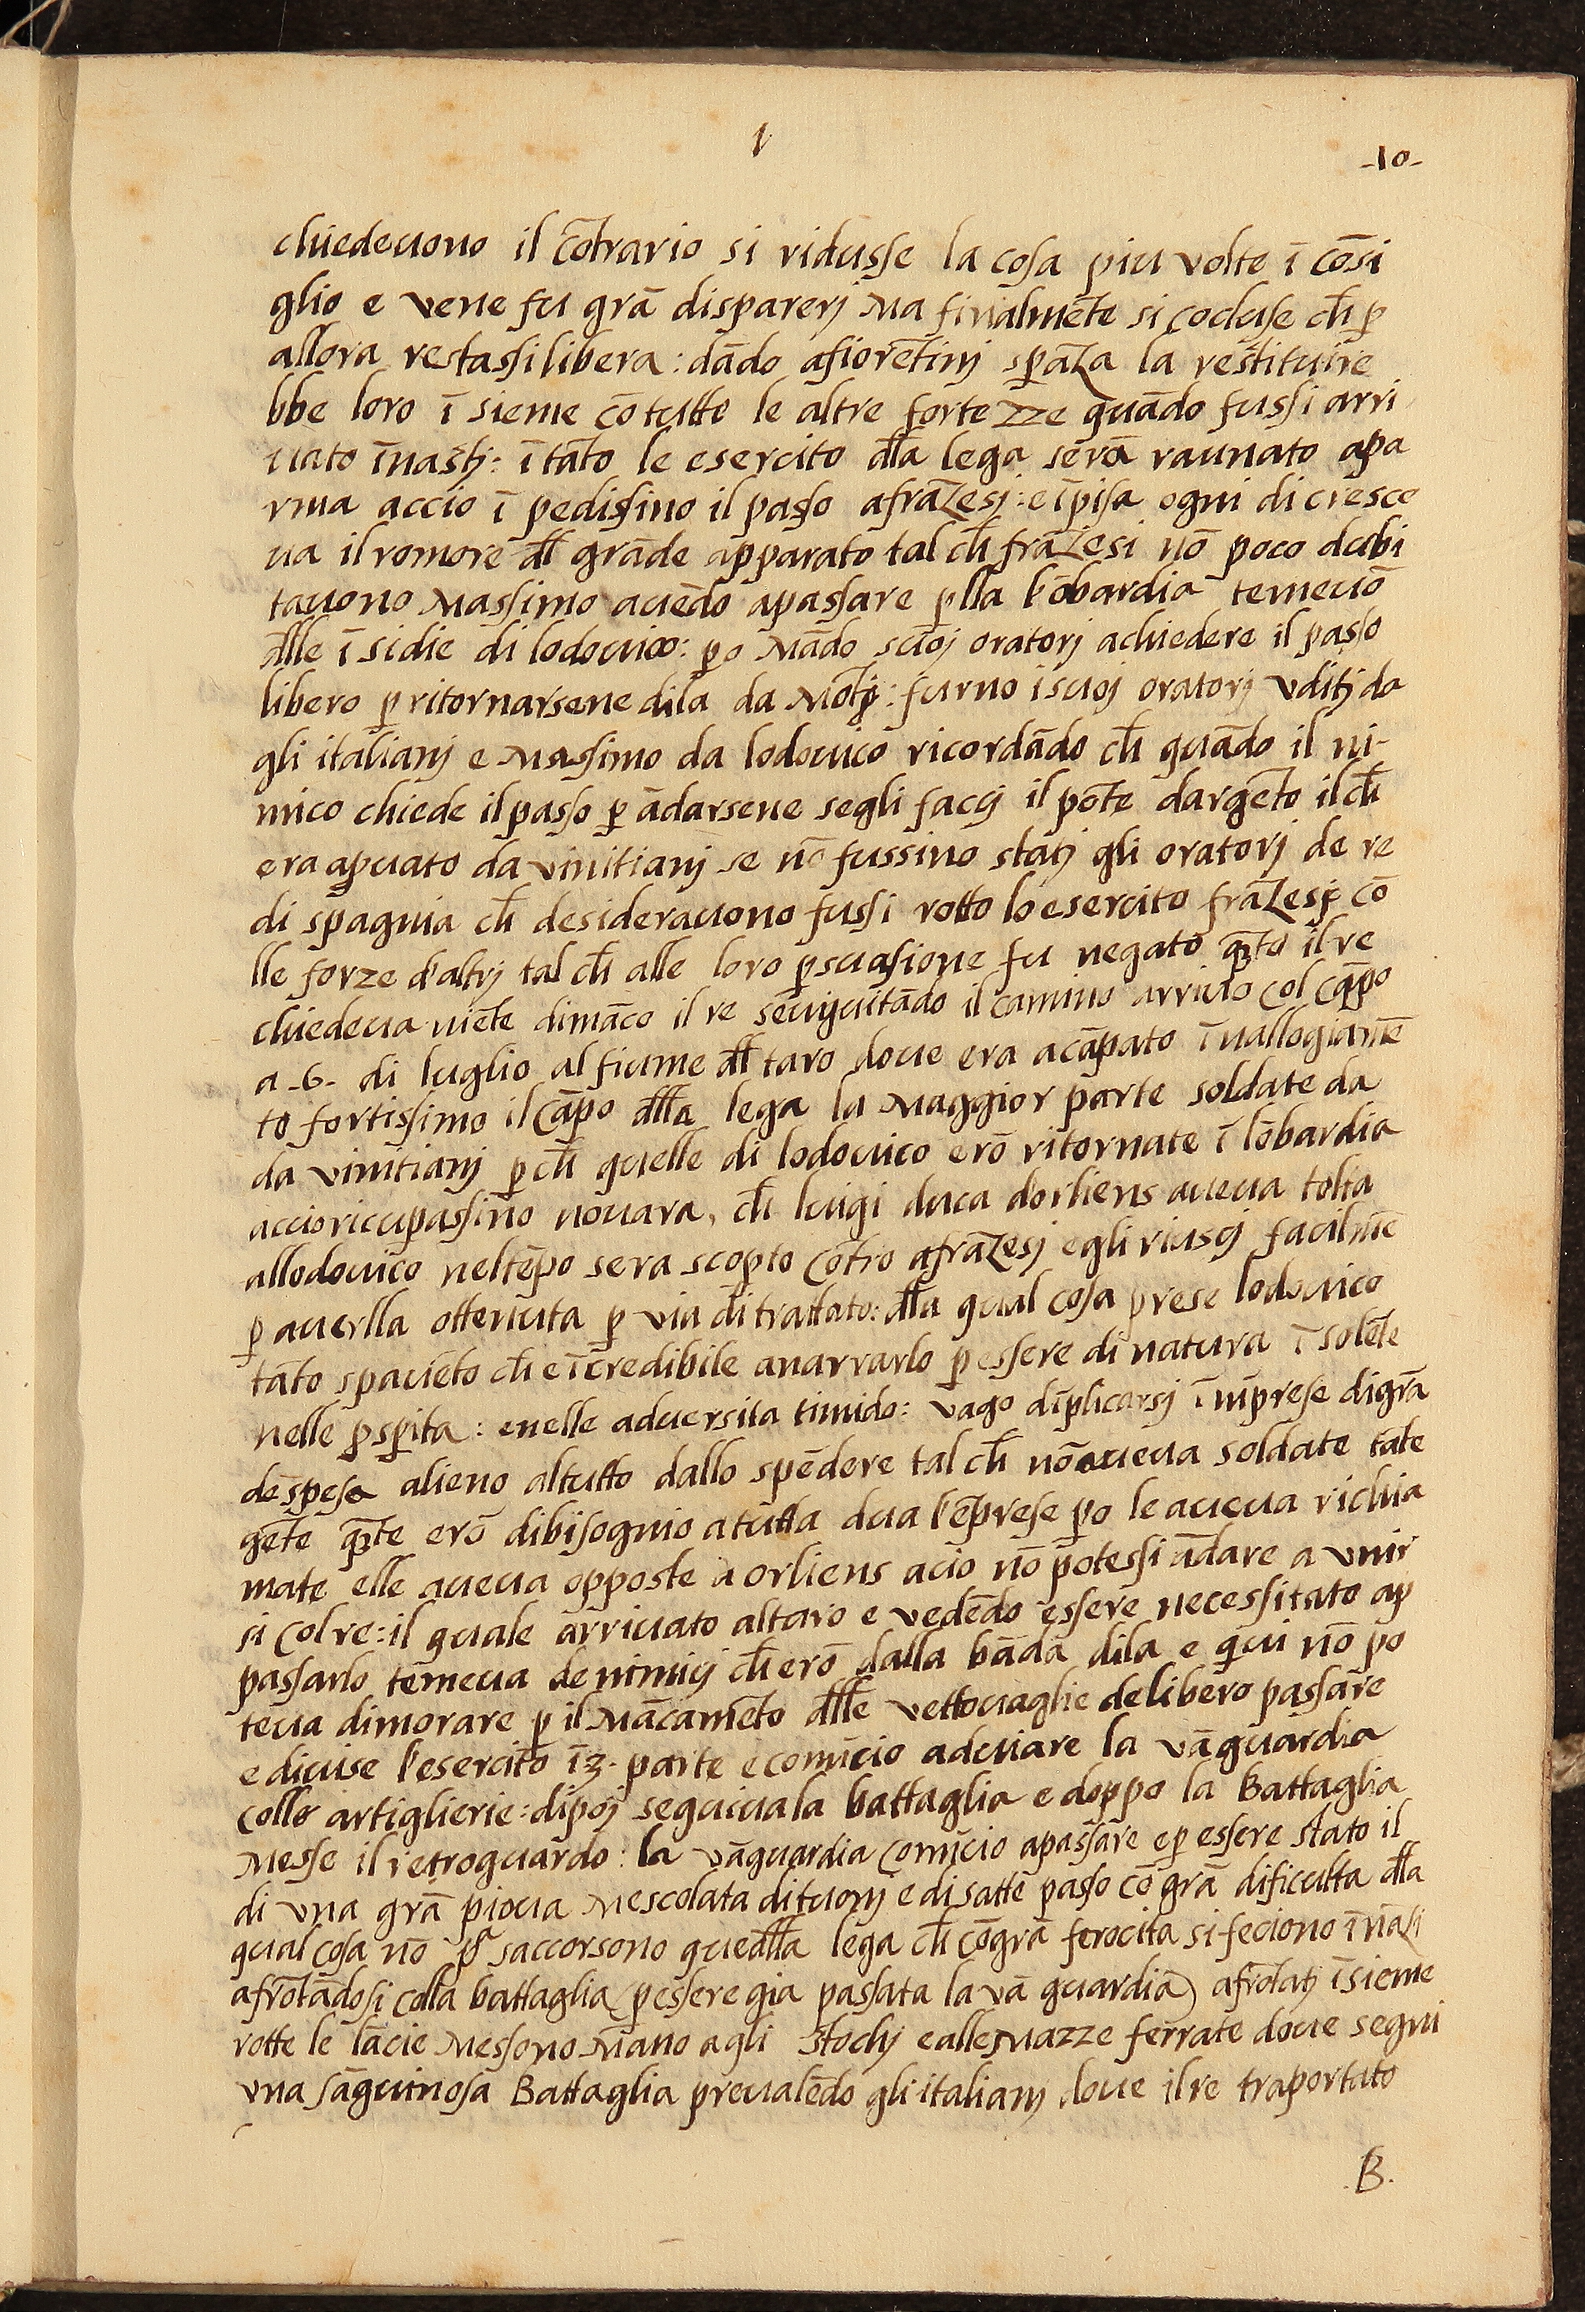 I
-10-
chiedeuono il cōtrario si ridusse la cosa piu volte ī cōsi
glio e vene fu grā disparerj ma finalmēte si cōcluse ch̄ ꝑ
allora restassi libera: dādo afiorētinj sꝑāza la restituire
bbe loro ī sieme cō tutte le altre fortezze quādo fussi arri
uato īnastj: ītāto le esercito dll̄a lega serā raunato apa
rma accio ī pedissino il passo afrāzesj: e īpisa ogni di cresce
ua il romore dll̄ grāde apparato tal ch̄ frāzesi nō poco dubi
tauono massimo auēdo apassare ꝑlla lōbardia temeuō
dll̄e īsidie di lodouico: ꝑo mādo suoj oratorj achiedere il passo
libero ꝑ ritornarsene dila da mōtj: furno i suoj oratorj vditj da
gli italianj e massimo da lodouico ricordādo ch̄ quādo il ni-
mico chiede il passo ꝑ ādarsene segli faccj il pōte dargēto il ch̄
era aꝓuato da vinitianj se nō fussino statj gli oratorj de re
di spagnia ch̄ desiderauono fussi rotto lo esercito frāzesj cō
lle forze d'altrj tal ch̄ alle loro ꝑsuasione fu negato quāto il re
chiedeua niēte dimāco il re seuguitādo il camino arriuo col cāpo
a -6- di luglio al fiume dll̄ taro doue era acāpato ī uallogiamē
to fortissimo il cāpo dll̄a lega la maggior parte soldate da
da vinitianj ꝑch̄ quelle di lodouico erō ritornate ī lōbardia
accio ricuꝑassino nouara, ch̄ luigi duca d'orliens aueua tolta
allodouico nel tēpo sera scoꝑto cōtro afrāzesj egli riuscj facilmē
ꝑ auerlla ottenuta ꝑ via di trattato: dll̄a qual cosa prese lodouico
tāto spauēto ch̄ e īcredibile anarrarlo ꝑ essere di natura īsolēte
nelle ꝓsꝑita: enelle aduersita timido: vago dīplicarsj ī mprese digrā
de spesa alieno altutto dallo spēdere tal ch̄ nō aueua soldate tate
gēte quāte erō dibisognio a tutta dua l'ēprese ꝑo le aueua richia
mate elle aueua opposte a orliens acio nō potessi ādare a vnir
si col re: il quale arriuato altaro e vedēdo essere necessitato ap
passarlo temeua de nimicj ch̄ erō dalla bāda dila e quui nō po
teua dimorare ꝑ il mācamēto dll̄e vettouaglie delibero passare
e diuise l'esercito ī 3. parte e comīcio aduiare la vāguardia
colle artiglierie: dipoj seguiua la battaglia e doppo la Battaglia
messe il retroguardo: la vāguardia comīcio apassare e ꝑ essere stato il
di una grā pioua mescolata di tuonj e di satte passo cō grā dificulta dll̄a
qual cosa nō saccorsono que dll̄a lega ch̄ cō grā ferocita si feciono īnāzi
afrōtādosi colla battaglia (ꝑ essere gia passata la vā guardia) afrōtatj īsieme
rotte le lācie messono mano agli stochj e alle mazze ferrate doue segui
vna sāguinosa Battaglia preualēdo gli italianj doue il re traportato
B.